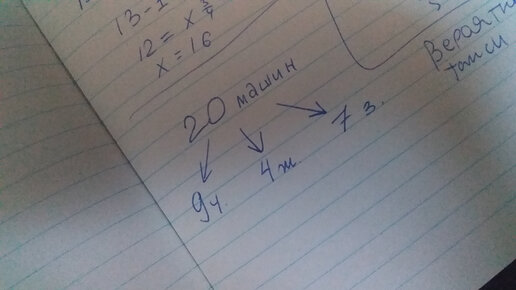 13-1
12 = x 3/4
x = 16
20 машин
9ч. 4ж. 7 з.
Вероятн
такси